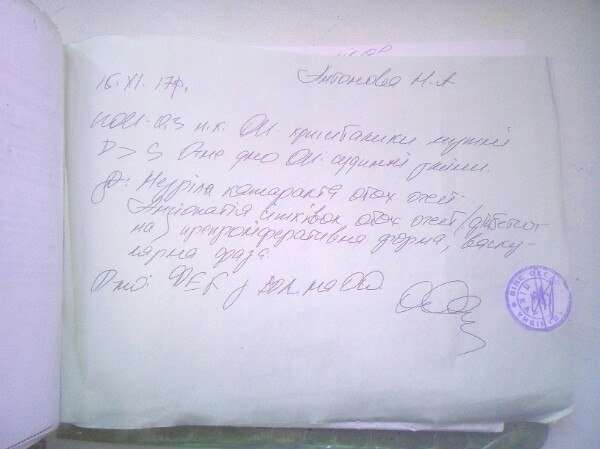 16.XI.17р. Антонова Н. А
VOU-0,3 н.к. OU кришталики мутні
D > S Очне дно OU-судинні зміни.
Д: Незріла катаракта обох очей.
Ангіопатія сітківок обох очей /діабетич-
на/, препроліферативна форма, васку-
лярна фаза.
ФЕК з ІОЛ на OD